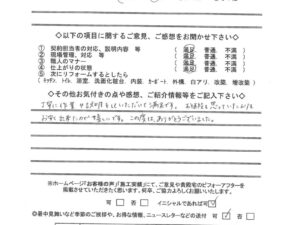 ◇以下の項目に関するご意見、ご感想をお聞かせ下さい◇
① 契約担当者の対応、説明内容 等 ( 満足 普通, 不満 )
② 現場管理、対応 等 ( 満足 普通, 不満 )
③ 職人のマナー ( 満足 普通, 不満 )
④ 仕上がりの状態 ( 満足 普通, 不満 )
⑤ 次にリフォームするとしたら
(キッチン, トイレ, 浴室, 洗面化粧台, 内装, カーポート 外構, 白アリ 改築, 増改築)
◇その他お気付きの点や感想、ご紹介情報等をご記入下さい◇
丁寧に作業や説明をしていただいて
お安く出来たのが嬉しいです。この度は、ありがとうございました。
※ホームページ『お客様の声』『施工実績』にて、ご意見や貴殿宅のビフォーアフターを
掲載させていただきたく思います。何卒、ご協力よろしくお願いいたします。
可 不可 イニシャルであれば可
◎暑中見舞いなど季節のご挨拶や、お得な情報、ニュースレターなどの送付 可 否